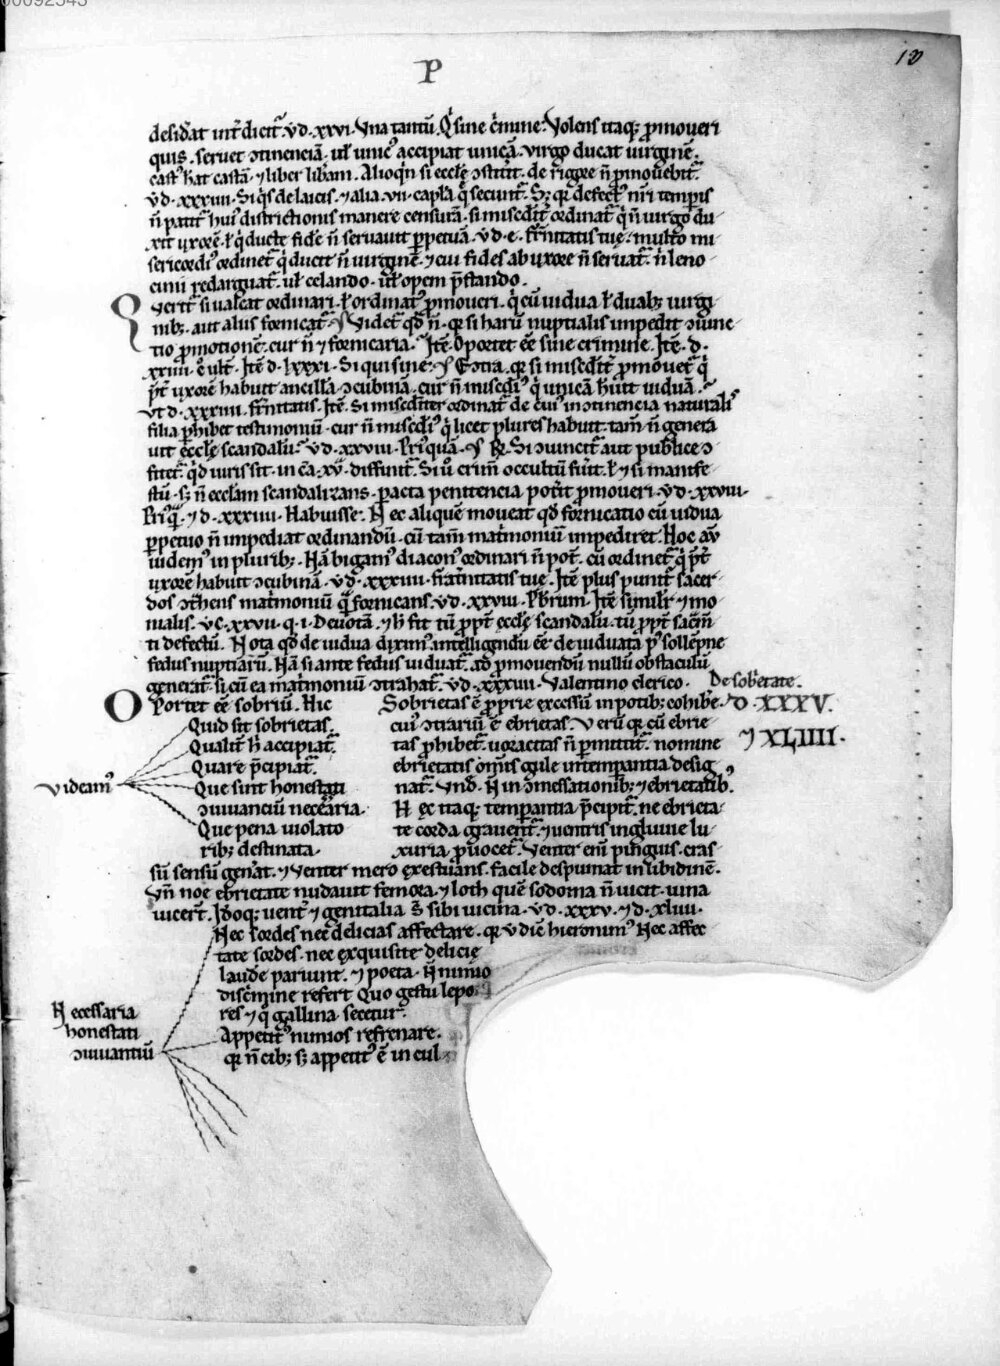 00092545
10
P
desid͛at int͛dicit᷑. vd. xxvi. Vna tantū. Qͥ sine c̄mine. Volens itaq; ꝓmoueri
quis. seruet ɔtinenciā. ul᷑ unicꝰ accipiat unicā. virgo ducat uirginē.
castꝰ h̄at castā. ⁊ liber lib͛am. Alioq̇n si eccl̄e ɔstit͛it. de rigore n̄ ꝓmouebit᷑.
vd. xxxiiii. Si q̇s de laicis. ⁊ alia. vii. capl̄a q̄ secunt᷑. S; qr defectꝰ nr̄i temꝑis
n̄ patit᷑ huiꝰ districtionis manere censurā. si misc̄dit͛ ordinat᷑ q̇ n̄ uirgo du-
xit uxorē. ł q̇ ducte fidē n̄ seruauit ꝑpetuā. vd. e. fr̄nitatis tue. multo mi-
sericordiꝰ ordinet᷑ q̇ ducit n̄ uirginē. ⁊ cui fides ab uxore n̄ seruat᷑. n̄ leno-
cinii redarguat᷑. ul᷑ celando. ul᷑ opem p̄stando.
Querit᷑ si ualeat ordinari. ł ordinatꝰ ꝓmoueri. q̇ cū uidua ł duab; uirgi-
nib; aut aliis fornicat᷑. Videt᷑ qd̄ n̄. qr si harū nuptialis impedit ɔiunc-
tio ꝓmotionē. cur n̄ ⁊ fornicaria. Itē. Oportet ēe sine crimine. Itē. d.
xxiiii. c̄ ult̄. Itē d. lxxxi. Si qui sine. Ecōtra. qr si misc̄dit͛ ꝓmouet᷑ q̇
p̄t͛ uxorē habuit ancillā ɔcubinā. cur n̄ misc̄diꝰ q̇ unicā h̄uit uiduā.
vt d. xxxiiii. fr̄nitatis. Itē. Si misc̄dit͛ ordinat᷑ de cuiꝰ inɔtinencia naturalis
filia ꝑhibet testimoniū. cur n̄ misc̄diꝰ q̇ licet plures habuit. tam̄ n̄ genera-
uit eccl̄e scandalū. vd. xxviii. Priꝰquā. R. Si ɔiuncit᷑ aut publice ɔ-
fitet᷑. qd̄ iuris sit. in cā. xv. diffinit᷑. Si u̇ crim̄ occultū fiīt. ł ⁊ si manife-
stū. s; n̄ eccl̄am scandalizans. ꝑacta penitencia pot͛it ꝓmoueri. vd. xxviii.
Priꝰq̄. ⁊ d. xxxiiii. Habuisse. Nec aliquē moueat qd̄ fornicatio cū uidua
ꝑpetuo n̄ impediat ordinandū. cū tam̄ mat͛moniū impediret. Hoc aū
uidemꝰ in plurib;. Nā bigamꝰ diaconꝰ ordinari n̄ pot̄. cū ordinet᷑ q̇ p̄t͛
uxorē habuit ɔcubinā. vd. xxxiiii. fr̄atnitatis tue. Itē plus punit᷑ sacer-
dos ɔt͛hens mat͛moniū q̄ fornicans. vd. xxviii. Pr̄brum. Itē simili͛ ⁊ mo-
nialis. vc. xxvii. q. i. Deuotā. ⁊ h̄ fit tū ꝓpt͛ eccl̄e scandalū. tū ꝓpt͛ sac̄m̄-
ti defectū. Nota qd̄ de uidua diximꝰ. intelligendū ēe de uiduata pꝰ sollēpne
fedus nuptiarū. Nā si ante fedus uiduat᷑. ad ꝓmouendū nullū obstaculū
generat᷑. si cū ea mat͛moniū ɔtrahat᷑. vd. xxxiiii. Valentino clerico.
De sobrietate.
D. XXXV.
⁊ XLIIII.
Oportet ēe sobriū. Hic
Videamꝰ
Quid sit sobrietas.
Qualit᷑ h̄ accipiat᷑.
Quare p̄cipiat᷑.
Que sint honestati
ɔuiuanciū nec̄aria.
Que pena uiolato-
rib; destinata.
Sobrietas ē ꝓprie excessū in potib; cohibē-
cuiꝰ ɔtrariū ē ebrietas. Verū qr cū ebrie-
tas ꝓhibet᷑. uoracitas n̄ ꝑmittit᷑. nomine
ebrietatis om̄is gule intemperantia desig-
nat᷑. Vnd̄. N̄ in ɔmessationib; ⁊ ebrietatib;.
Hęc itaq; temꝑantia p̄cipit᷑. ne ebrieta-
te corda grauent᷑. ⁊ uentris ingluuie lu-
xuria ꝓuocet᷑. Venter enī pinguis. cras-
sū sensū gen͛at. ⁊ Venter mero exestuans. facile despumat in libidinē.
Vn̄ noe ebrietate nudauit femora. ⁊ loth quē sodoma n̄ uicit. uina
uicert̄. Idoq; uent͛ ⁊ genitalia s̄ sibi uicina. vd. xxxv. ⁊ d. xliiii.
Necessaria
honestati
ɔuiuantiū
Nec sordes nec delicias affectare. qr vdiē hieronimꝰ Nec affec-
tate sordes. nec exquisite delicie
laudē pariunt. ⁊ poeta. N̄ nimio
disc̄mine refert Quo gestu lepo-
res ⁊ q̇ gallina secetur.
Appetitꝰ nimios refrenare.
qr n̄ cib; s; appetitꝰ ē in cul-